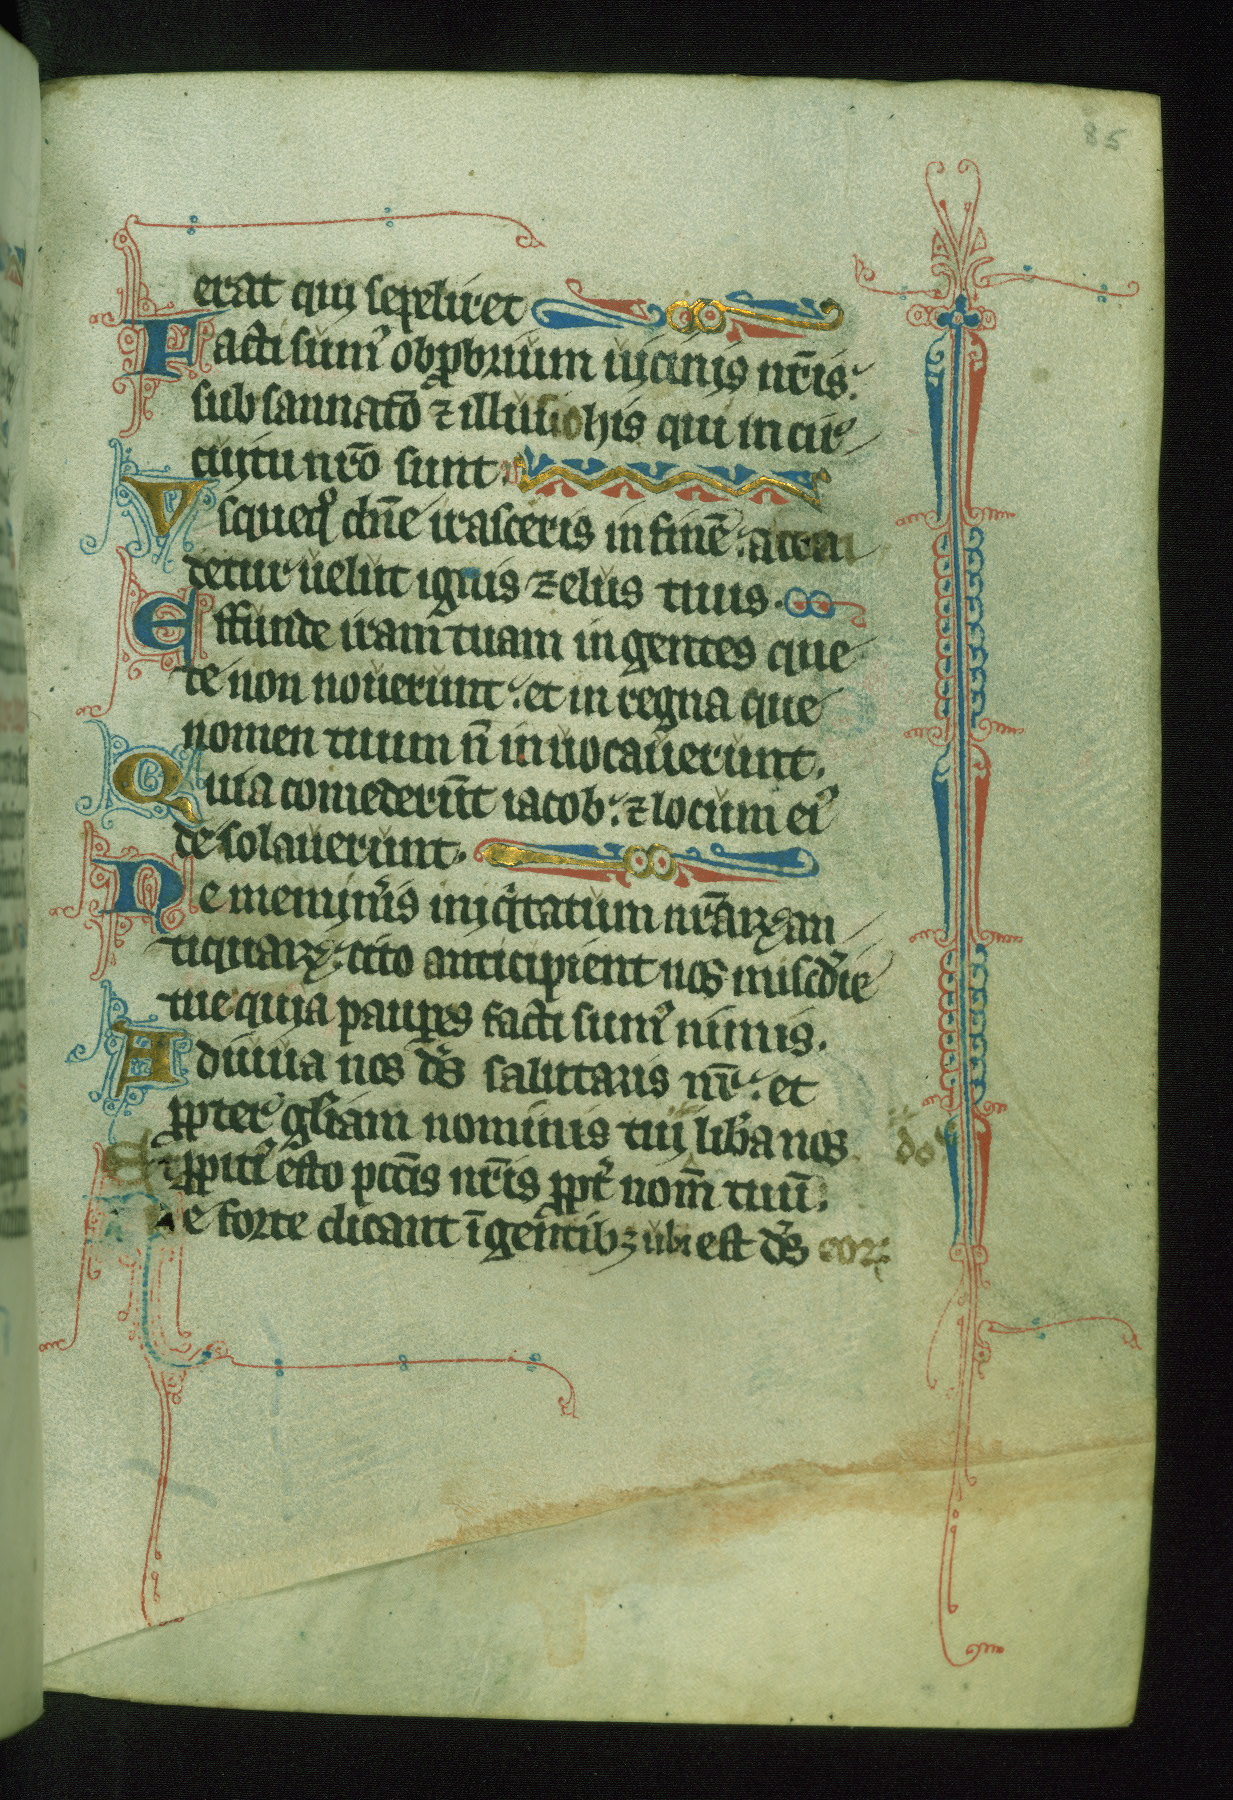 85
erat qui sepeliret
Facti sumꝰ obꝓbrium uicinis nr̄is.
subsannatō ⁊ illusio his qui in cir
cuitu nr̄o sunt.
Vsqueqͦ dn̄e irasceris in finē: accen
detur uelut ignis zelus tuus.
Effunde iram tuam in gentes que
te non nouerunt: et in regna que
nomen tuum n̄ inuocauerunt.
Quia comederūt iacob: ⁊ locum eiꝰ
desolauerunt.
Ne meminͥis iniqͥtatum nr̄aꝝ an
tiquaꝝ: cito anticipient nos misc̄die
tue quia pauꝑes facti sumꝰ nimis.
Adiuua nos ds̄ salutaris nr̄: et
ꝓpter gl̄iam nominis tui lib̄a nos do
Et ꝓpitiꝰ esto pcc̄is nr̄is ꝓpt̄ nom̄ tuū.
Ne forte dicant ī gentibꝫ ubi est ds̄ eoꝝ